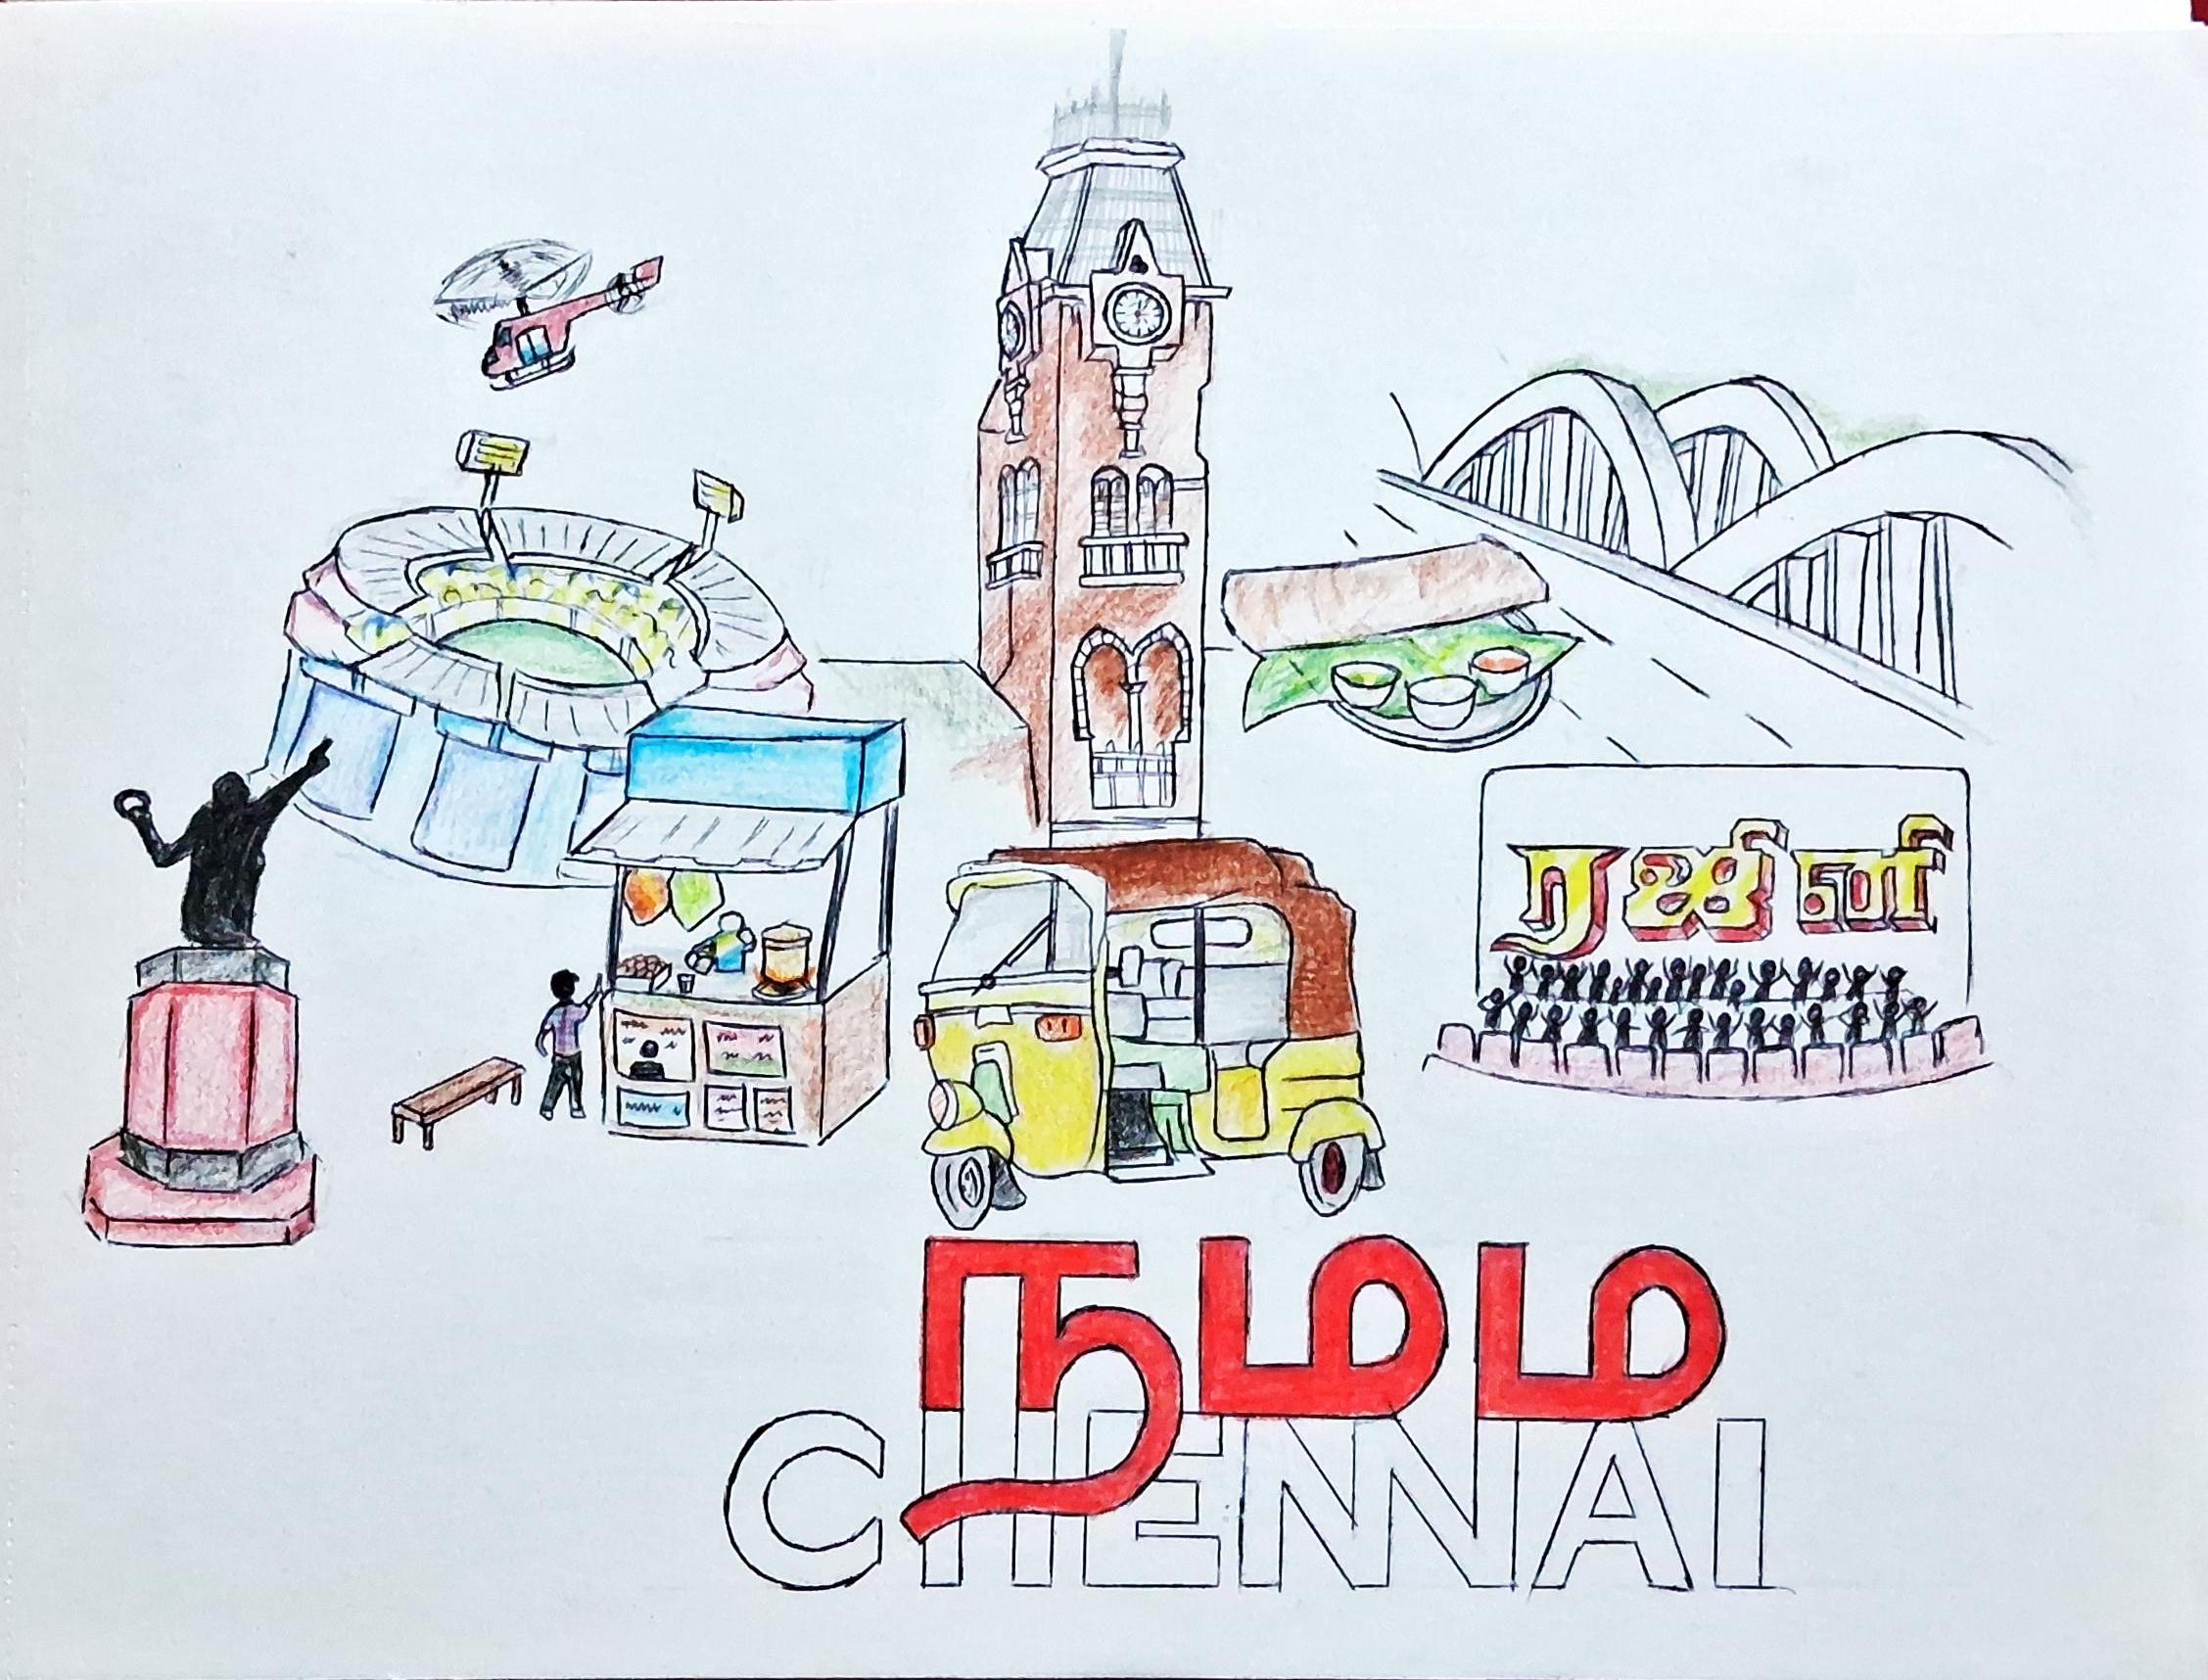 ரஜினி
நம்ம
CHENNAI